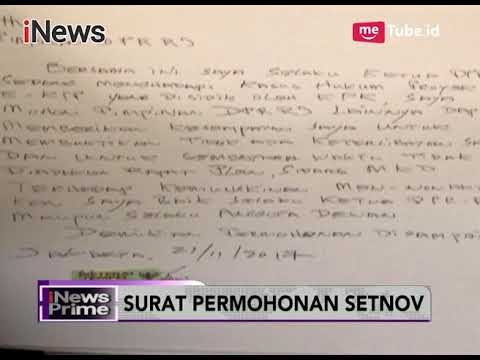 iNews
me Tube.id
DPR RI
BERSAMA INI SAYA SELAKU KETUA DP
SEDANG MENGHADAPI KASUS HUKUM PROYEK
E-KTP YANG DISIDIK OLEH KPK SAYA
MOHON PIMPINAN DPR RI LAINNYA DAP
MEMBERIKAN KESEMPATAN SAYA UNTUK
MEMBUKTIKAN TIDAK ADA KETERLIBATAN SA
DAN UNTUK SEMENTARA WAKTU TIDAK
DIADAKAN RAPAT PLENO, SIDANG MKD
TERHADAP KEMUNGKINAN MEN-NONAKTIF
KAN SAYA BAIK SELAKU KETUA DPR-R
MAUPUN SELAKU ANGGOTA DEWAN
DEMIKIAN PERMOHONAN DISAMPAI
JAKARTA, 21/11/2017
iNews
Prime
SURAT PERMOHONAN SETNOV